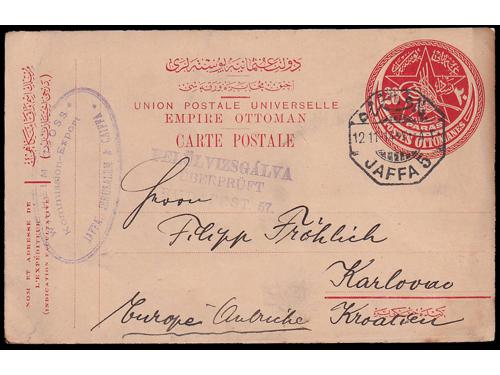 دولت عثمانیه پوسته لری
UNION POSTALE UNIVERSELLE
EMPIRE OTTOMAN
CARTE POSTALE
20
PARAS
POSTES OTTOMANES
12 11
JAFFA 5
FELÜLVIZSGÁLVA
ÜBERPRÜFT
BUDAPEST 57.
Kommission-Export
JAFFA, JERUSALEM & CAIFFA
NOM ET ADRESSE DE
L'EXPÉDITEUR
(INDICATION FACULTATIVE)
Herrn
Filipp Fröhlich
Karlovac
Europe Autriche Kroatien